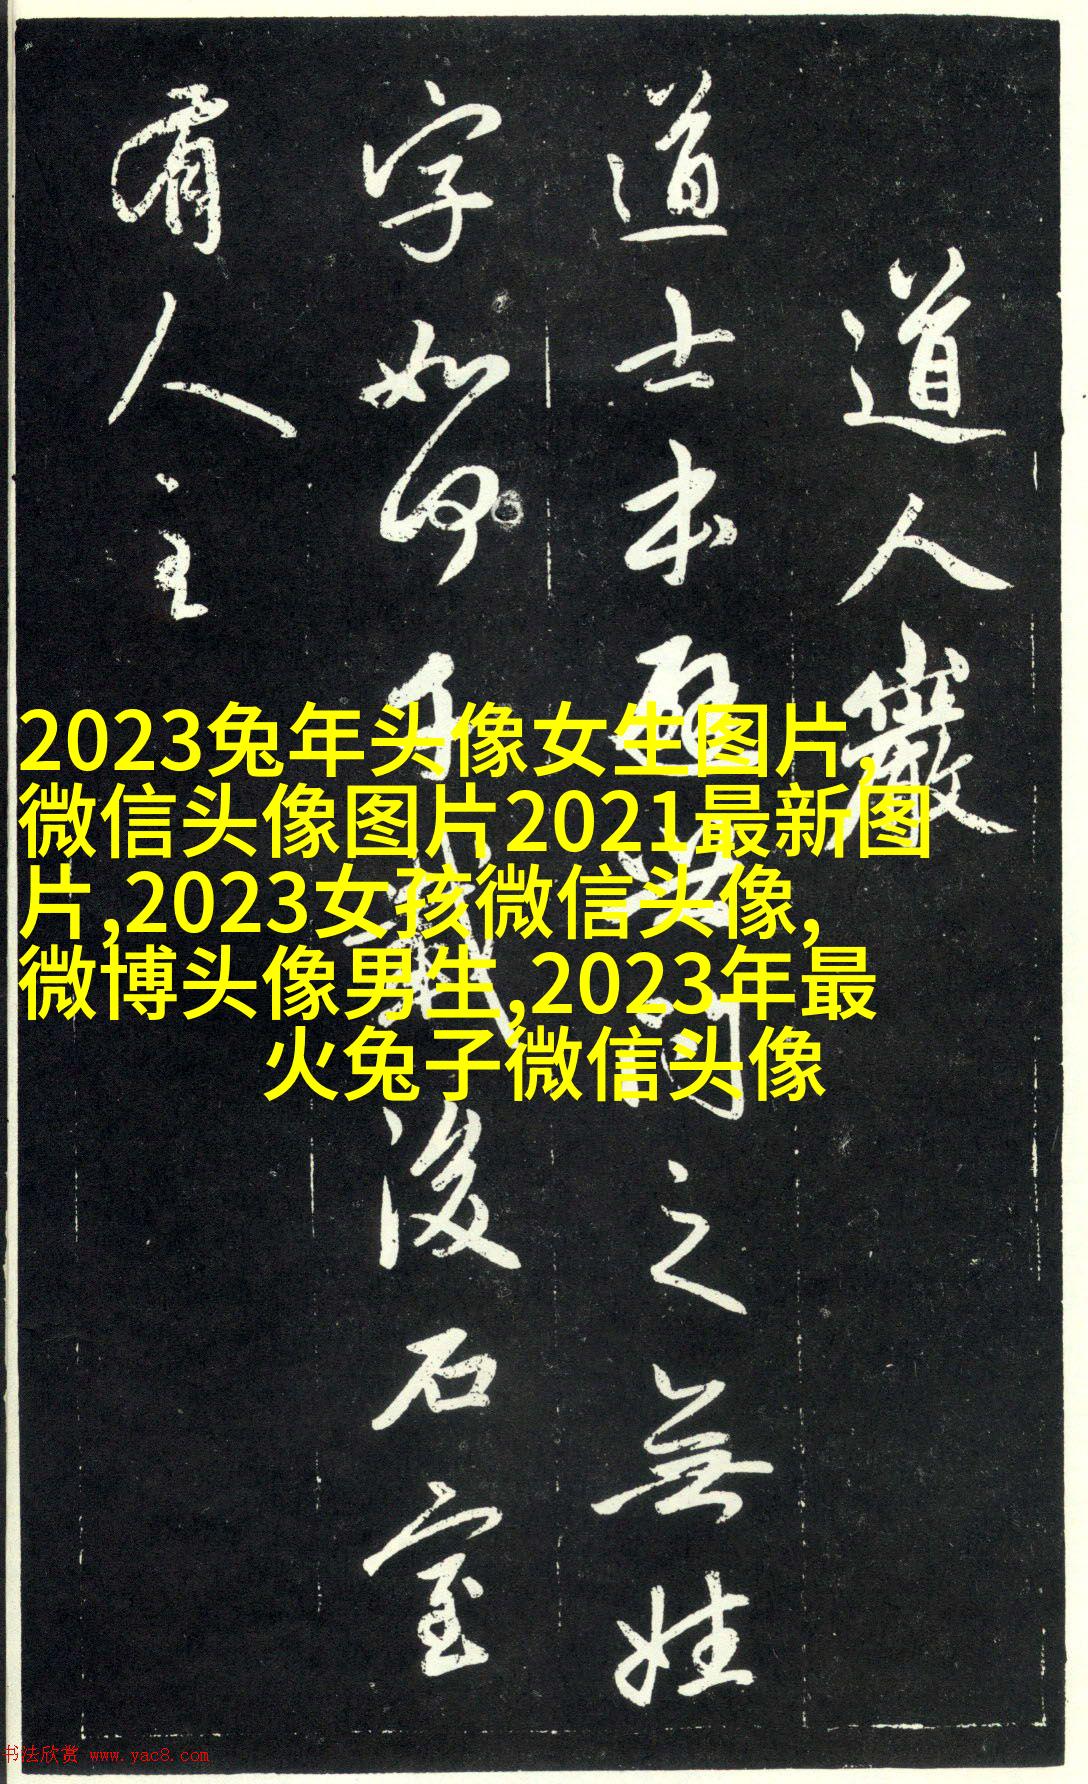 道人巖
道士本避問之無姓
字如何識後石室
有人主
2023兔年头像女生图片,
微信头像图片2021最新图
片,2023女孩微信头像,
微博头像男生,2023年最
火兔子微信头像
书法欣赏 www.yac8.com